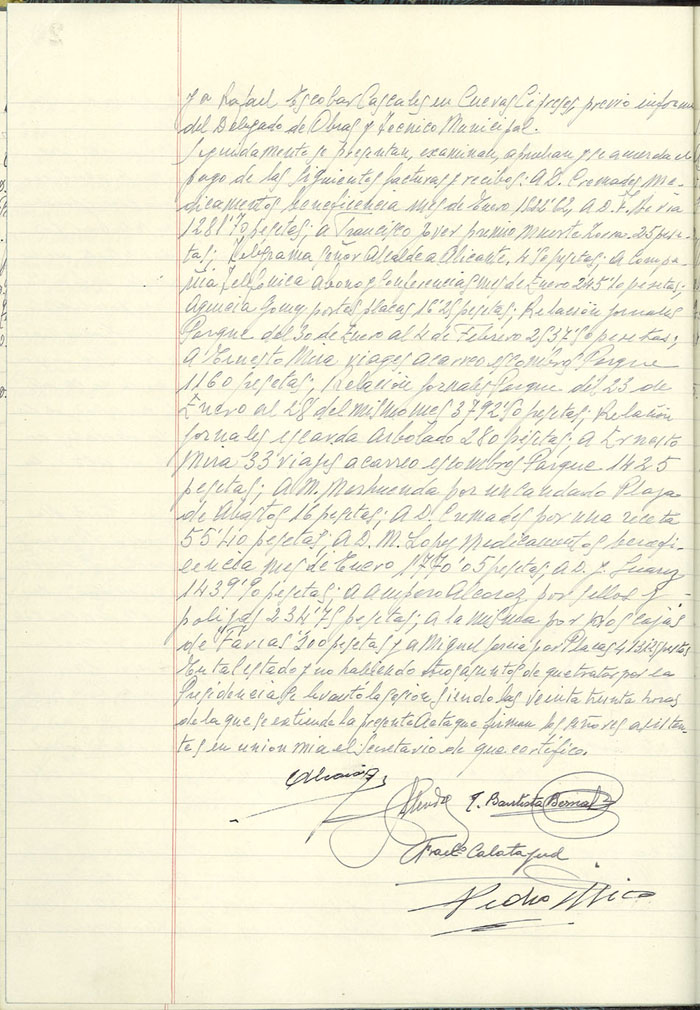 y a Rafael Escobar Cascales en Cuevas Cipreses, previo informe
del Delegado de Obras y Tecnico Municipal.
Seguidamente se presentan, examinan, aprueban y se acuerda el
pago de las siguientes facturas y recibos: A D. Cremades Me-
dicamentos beneficencia mes de Enero 1822'62, A D. F.
1281'70 pesetas; a Francisco premio muerte Zorra 25 pese-
tas; Telegrama señor Alcalde a Alicante, 4'50 pesetas; a Compa-
ñia Telefónica abono y Conferencias mes de Enero 245'70 pesetas;
Agencia portes placas 16'25 pesetas; Relación jornales
Parque del 30 de Enero al 4 de Febrero 2537'50 pesetas;
a Ernesto Mira viages acarreo escombros Parque
1160 pesetas; Relación jornales Parque del 23 de
Enero al 28 del mismo mes 3792'50 pesetas; Relación
jornales escarda arbolado 280 pesetas; a Ernesto
Mira 33 viajes acarreo escombros Parque 1425
pesetas; a M. Marhuenda por un candado Plaza
de Abastos 16 pesetas; a D. Cremades por una receta
55'40 pesetas; a D. M. Lopez Medicamentos benefi-
cencia mes de Enero 1770'05 pesetas, a D. J. Suarez
1439'90 pesetas; a Amparo Alcaraz por sellos y
polizas 234'75 pesetas; a la misma por dos cajas
de "Farias" 300 pesetas y a Miguel por Placas pesetas
En tal estado y no habiendo otros asuntos de que tratar por la
Presidencia se levantó la sesion siendo las veinte treinta horas
de la que se extiende la presente Acta que firman los señores asisten-
tes en union mia el Secretario de que certifico.
J. Bautista Bernal
Calatayud
Pedro Mico